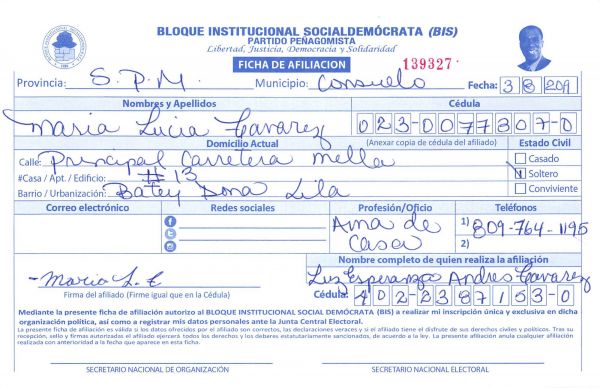 BLOQUE INSTITUCIONAL SOCIALDEMÓCRATA (BIS)
PARTIDO PEÑAGOMISTA
Libertad, Justicia, Democracia y Solidaridad
FICHA DE AFILIACION
139327
Provincia: S.P.M. Municipio: Consuelo Fecha: 3 8 2011
Nombres y Apellidos Cédula
Maria Lucia Tavarez 023-0077307-0
Domicilio Actual (Anexar copia de cédula del afiliado) Estado Civil
Calle: Principal Carretera Mella Casado
#Casa / Apt. / Edificio: #13 Soltero
Barrio / Urbanización: Batey Dona Lila Conviviente
Correo electrónico Redes sociales Profesión/Oficio Teléfonos
Ama de Casa 1) 809-764-1195
2)
Nombre completo de quien realiza la afiliación
Maria L. Luz Esperanza Andres Tavarez
Firma del afiliado (Firme igual que en la Cédula) Cédula: 402-2387153-0
Mediante la presente ficha de afiliación autorizo al BLOQUE INSTITUCIONAL SOCIAL DEMÓCRATA (BIS) a realizar mi inscripción única y exclusiva en dicha
organización política, así como a registrar mis datos personales ante la Junta Central Electoral.
La presente ficha de afiliación es válida si los datos ofrecidos por el afiliado son correctos, las declaraciones veraces y si el afiliado tiene el disfrute de sus derechos civiles y políticos. Tras su
recepción, sello y firmas autorizadas el afiliado ejercerá todos los derechos y los deberes estatutariamente sancionados, de acuerdo a la ley. La presente afiliación anula cualquier afiliación
realizada con anterioridad a la fecha que aparece en esta ficha.
SECRETARIO NACIONAL DE ORGANIZACIÓN SECRETARIO NACIONAL ELECTORAL